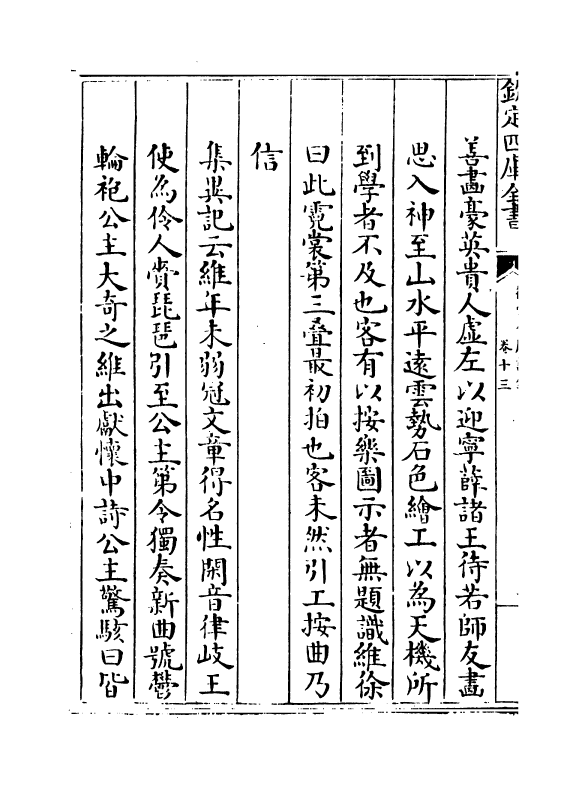 欽定四庫全書
卷十三
善畫豪英貴人虛左以迎寧薛諸王待若師友畫
思入神至山水平逺雲勢石色繪工以為天機所
到學者不及也客有以按樂圖示者無題識維徐
曰此霓裳第三疊最初拍也客未然引工按曲乃
信
集異記云維年未弱冠文章得名性閑音律岐王
使為伶人賫琵琶引至公主第令獨奏新曲號鬱
輪袍公主大奇之維出獻懷中詩公主驚駭曰皆